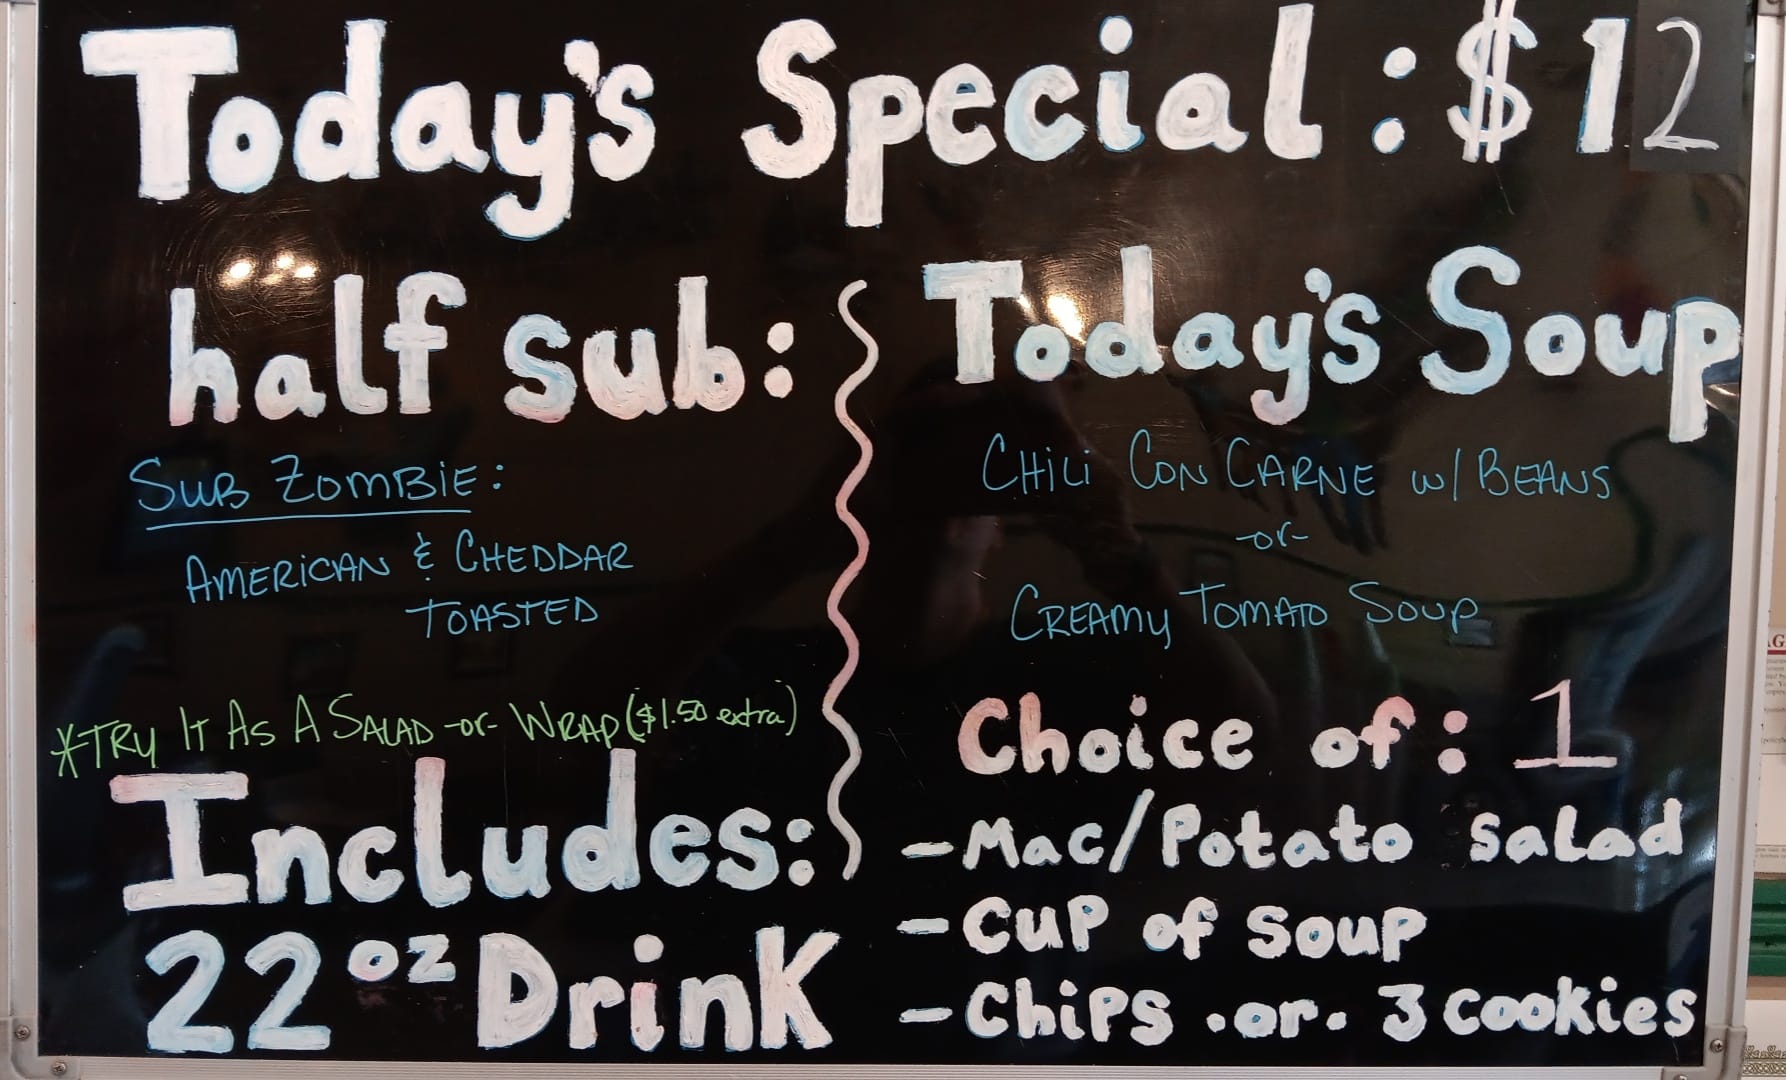 Today's Special: $12
half sub:
SUB ZOMBiE:
AMERiCAN & CHEDDAR
TOASTED
*TRY IT AS A SALAD -or- WRAP ($1.50 extra)
Includes:
22 oz Drink
Today's Soup
CHiLi CON CARNE w/ BEANS
-or-
CREAMY TOMATO SOUP
Choice of: 1
- Mac/Potato salad
- Cup of soup
- Chips .or. 3 cookies